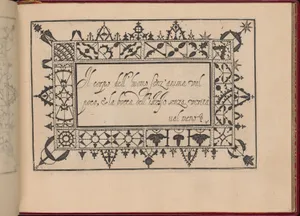 Il corpo dell' huomo senz' anima val
poco, & la borsa dell' istesso senza moneta
val meno.